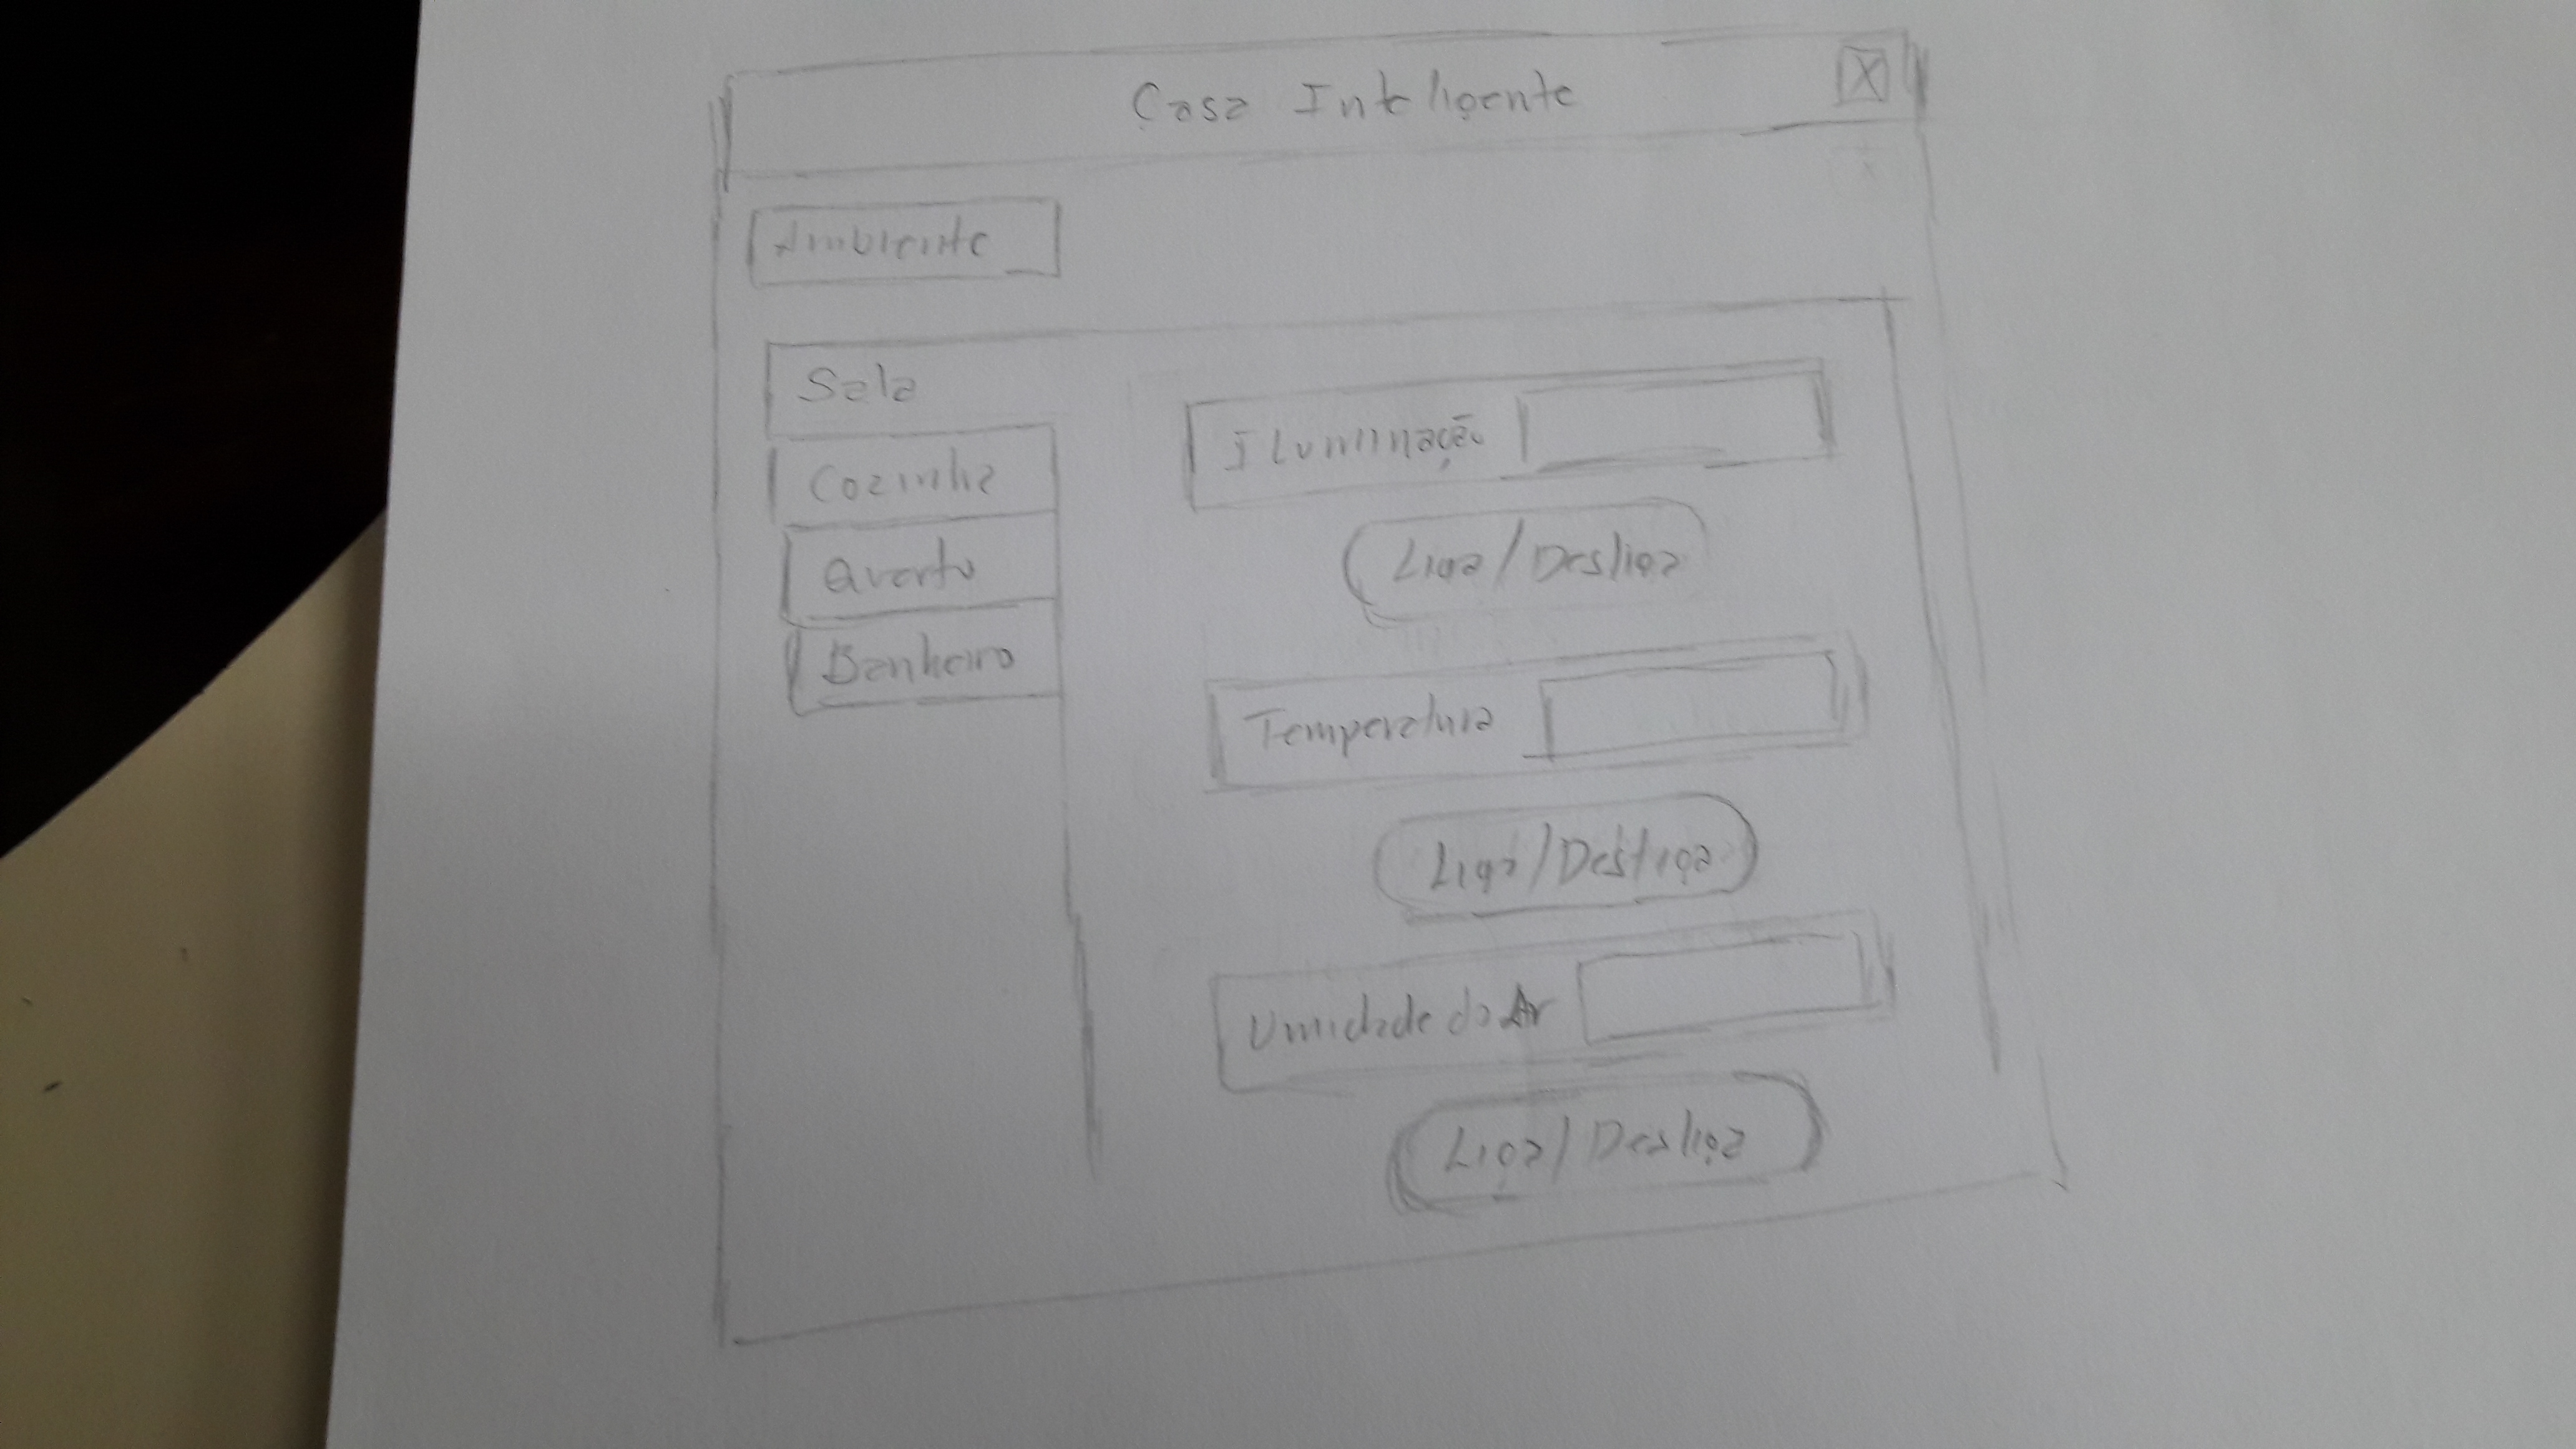 Casa Inteligente X
Ambiente
Sala
Cozinha
Quarto
Banheiro
Iluminação
Liga/Desliga
Temperatura
Liga/Desliga
Umidade do Ar
Liga/Desliga